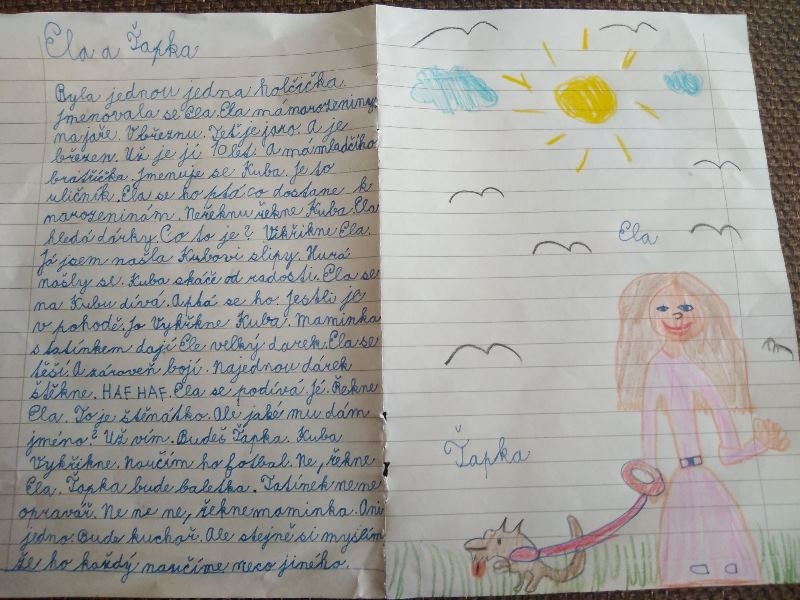 Ela a Ťapka
Byla jednou jedna holčička
jmenovala se Ela. Ela má narozeniny
na jaře. V březnu. Teť je jaro. A je
březen. Už je jí 10 let. A ma mladčího
bratříčka. Jmenuje se Kuba. Je to
uličník. Ela se ho ptá co dostane k
narozeninám. Neřeknu řekne Kuba. Ela
hledá dárky. Co to je? Vikřikne Ela.
Já jsem našla Kubovi slipy. Hurá
našly se. Kuba skáče od radosti. Ela se
na Kubu dívá. A ptá se ho. Jestli je
v pohodě. Jo Vykřikne Kuba. Maminka
s tatínkem dají Ele velký darek. Ela se
těší. A zároveň bojí. Najednou dárek
štěkne. HAF HAF. Ela se podívá. Jé. Řekne
Ela. To je štěnátko. Ale jaké mu dám
jméno? Už vím. Budeš Ťapka. Kuba
Vykřikne. Naučím ho fotbal. Ne, řekne
Ela. Ťapka bude baletka. Tatínek ne ne
opravář. Ne ne ne, řekne maminka. Ani
jedno. Bude kuchař. Ale stejně si myslím
že ho každý naučíme neco jiného.
Ela
Ťapka